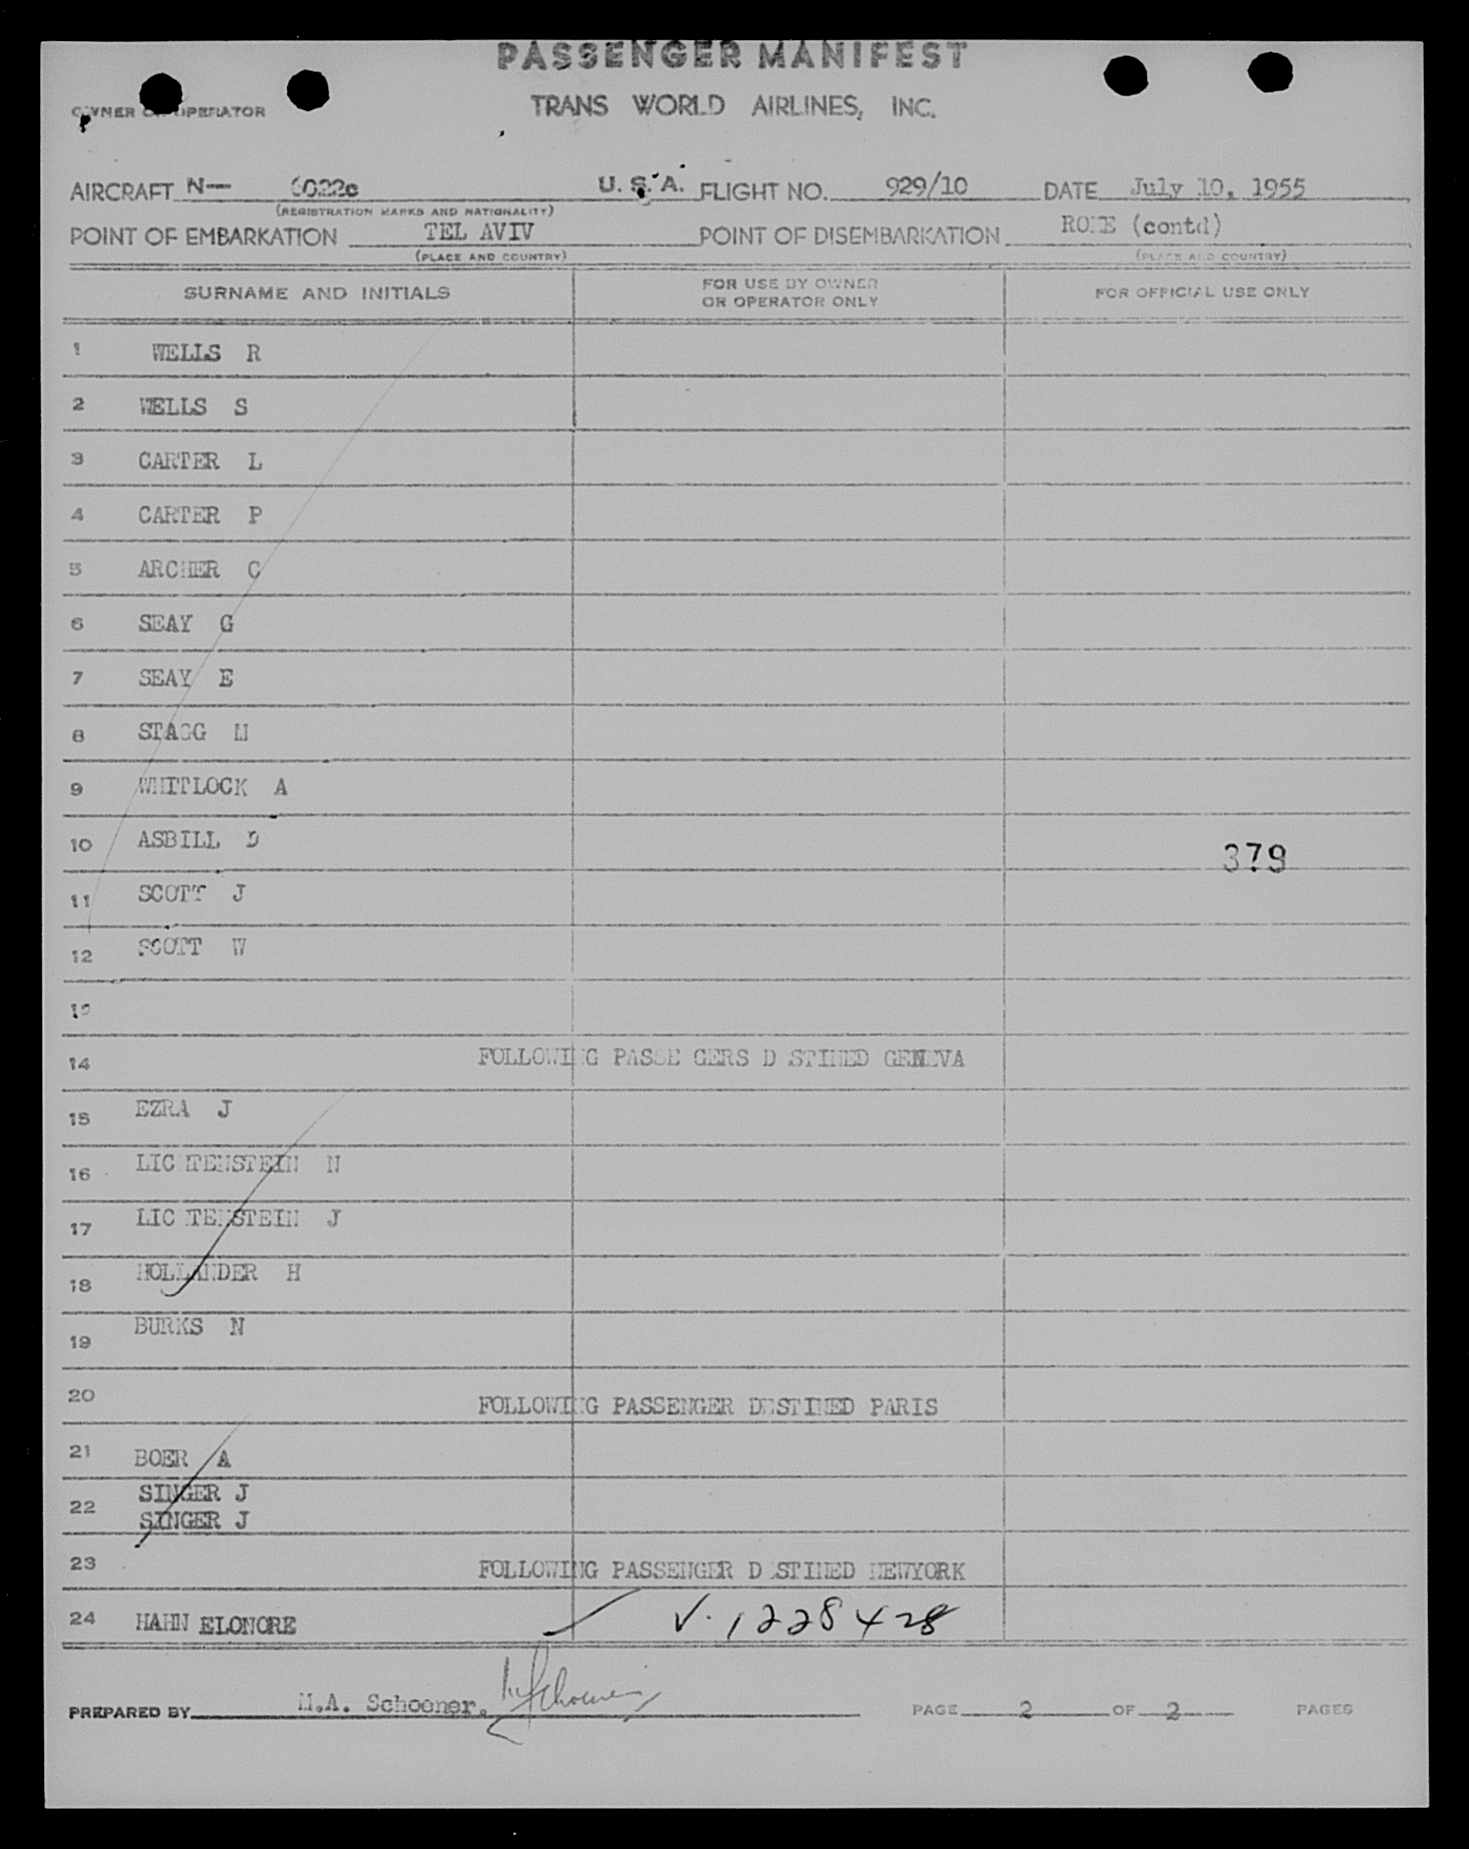 PASSENGER MANIFEST
OWNER OR OPERATOR TRANS WORLD AIRLINES, INC.
AIRCRAFT N— 6022c U. S. A. FLIGHT NO. 929/10 DATE July 10, 1955
(REGISTRATION MARKS AND NATIONALITY)
POINT OF EMBARKATION TEL AVIV POINT OF DISEMBARKATION ROME (contd)
(PLACE AND COUNTRY) (PLACE AND COUNTRY)
SURNAME AND INITIALS FOR USE BY OWNER OR OPERATOR ONLY FOR OFFICIAL USE ONLY
1 WELLS R
2 WELLS S
3 CARTER L
4 CARTER P
5 ARCHER C
6 SEAY G
7 SEAY E
8 STAGG M
9 WHITLOCK A
10 ASBILL D 379
11 SCOTT J
12 SCOTT W
13
14 FOLLOWING PASSENGERS DESTINED GENEVA
15 EZRA J
16 LICHTENSTEIN N
17 LICHTENSTEIN J
18 HOLLANDER H
19 BURKS N
20 FOLLOWING PASSENGER DESTINED PARIS
21 BOER A
22 SINGER J
SINGER J
23 FOLLOWING PASSENGER DESTINED NEWYORK
24 HAHN ELONORE V. 1228428
PREPARED BY M.A. Schooner. PAGE 2 OF 2 PAGES